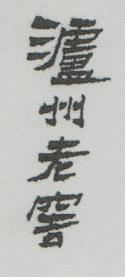 瀘州老窖